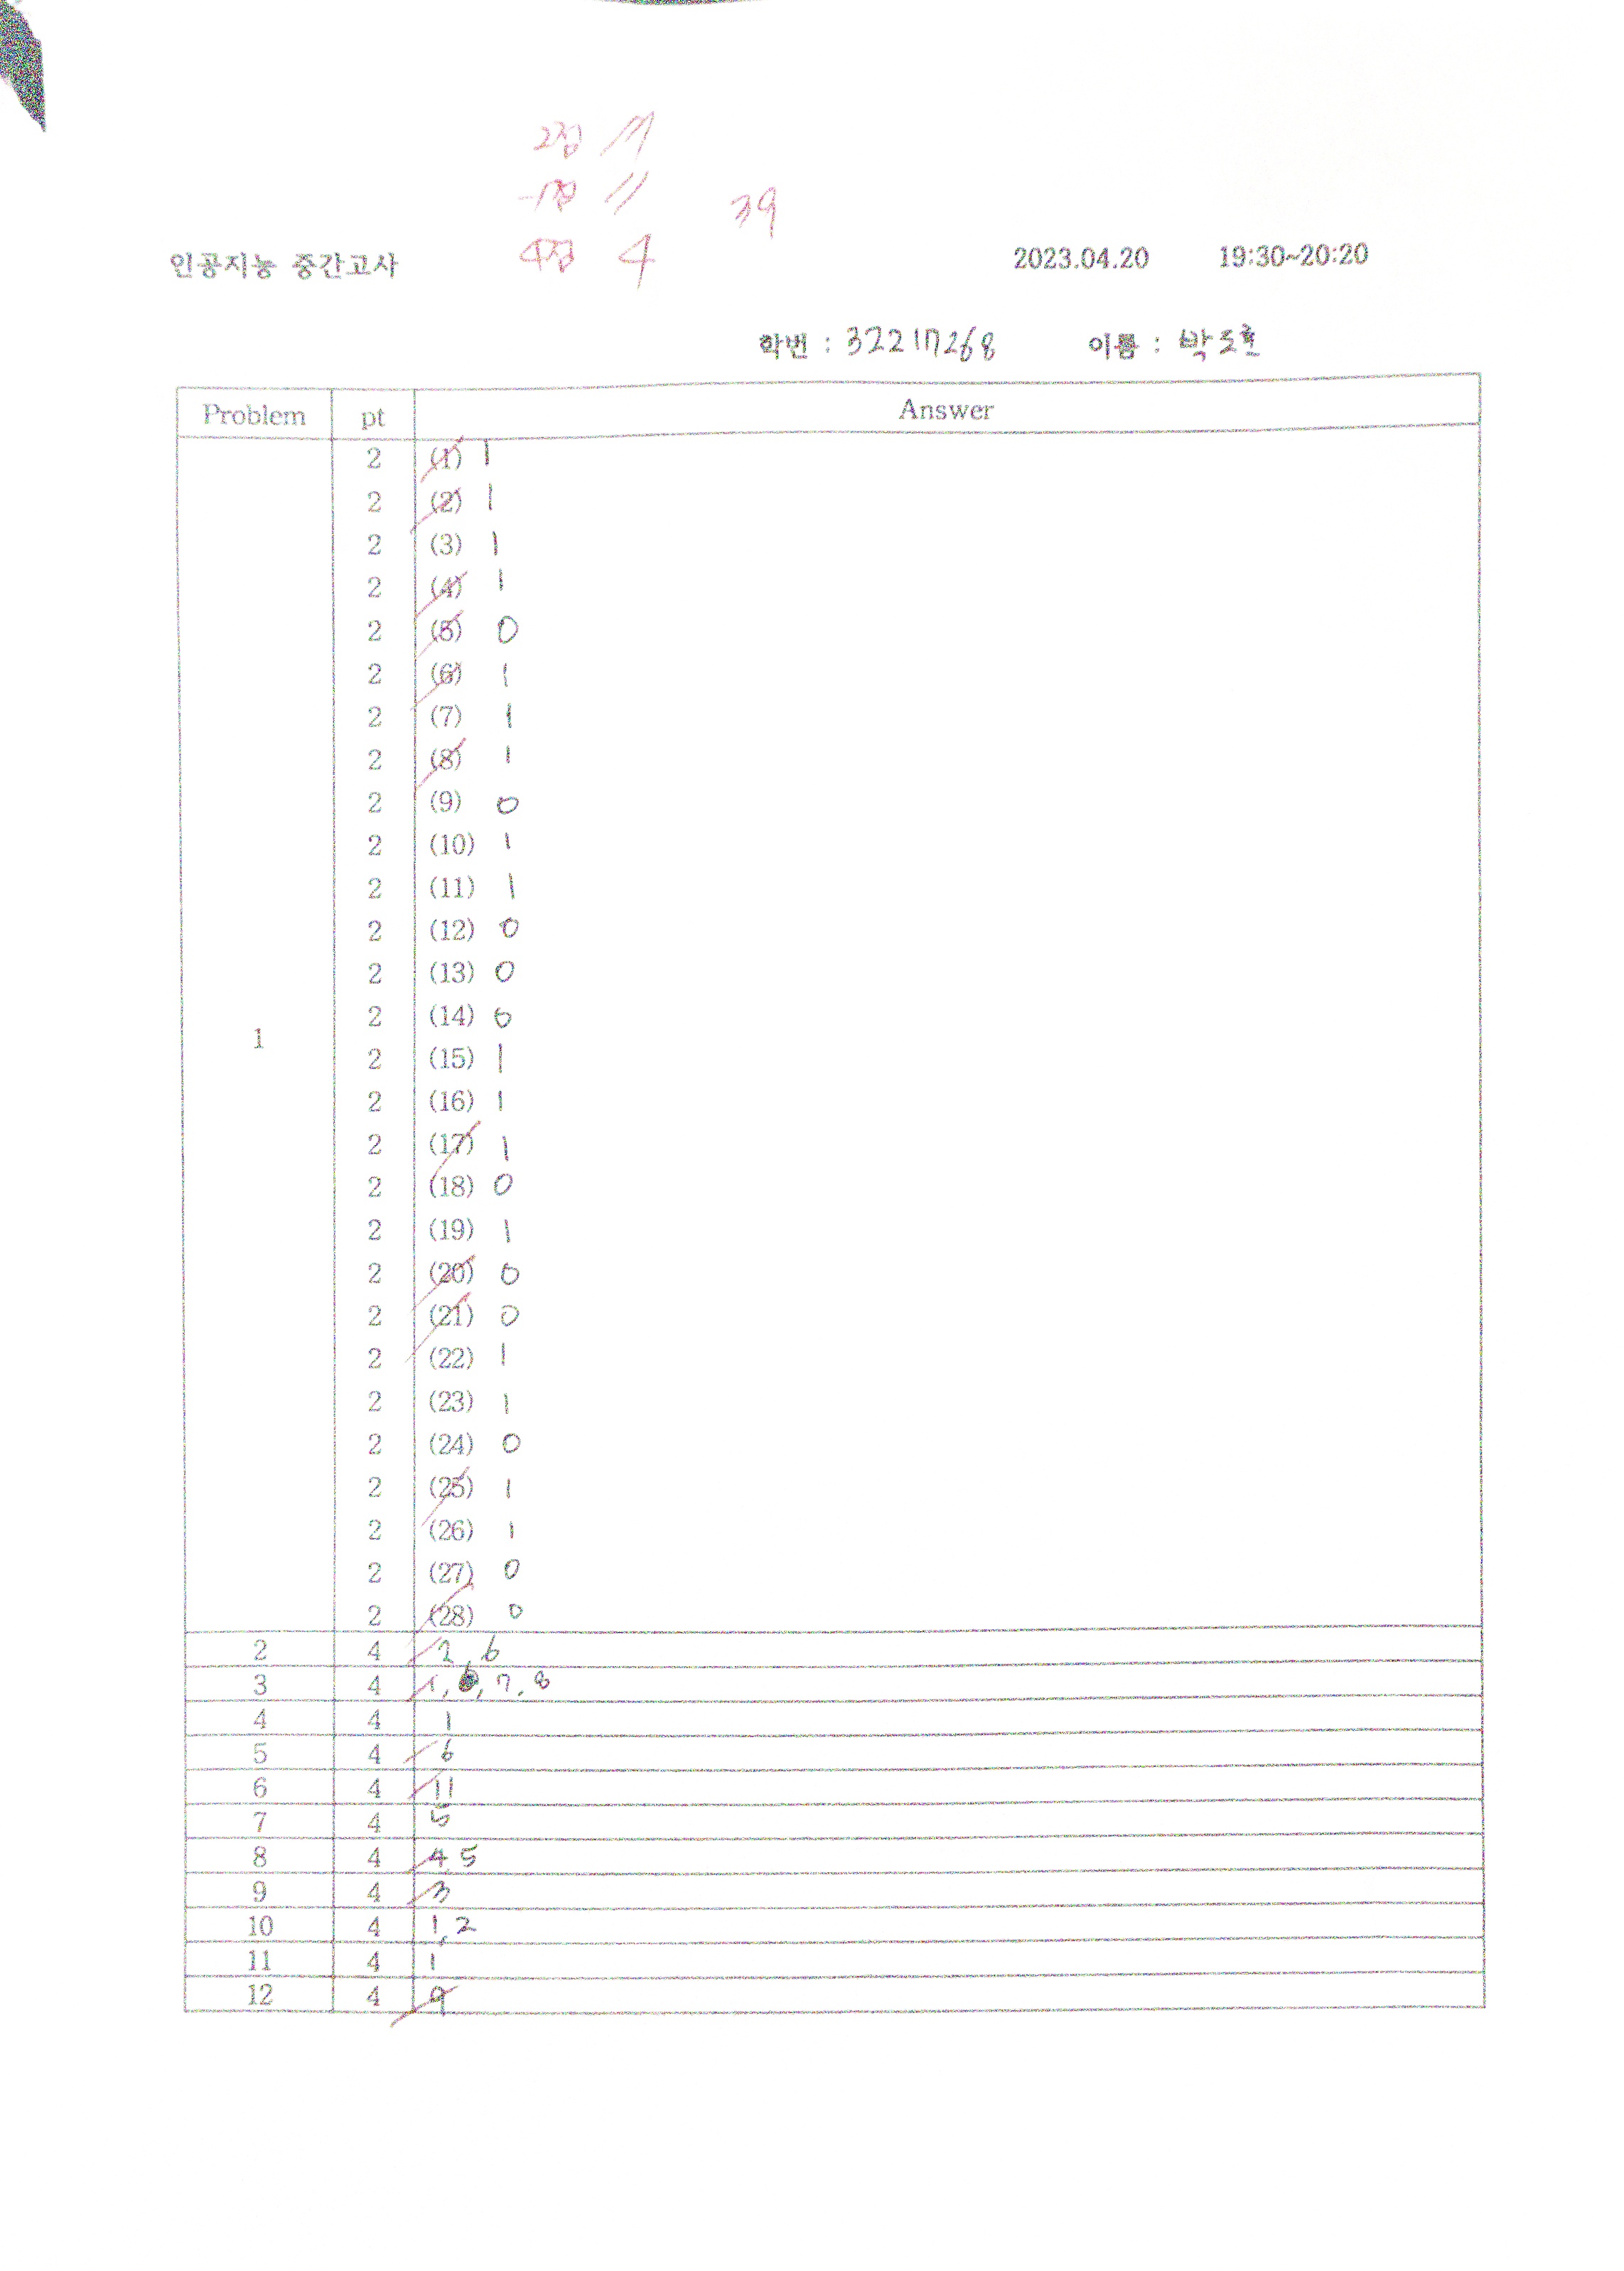 2점 17
-1점 11
39
4점 4
인공지능 중간고사 2023.04.20 19:30~20:20
학번 : 32217268 이름 : 박도현
Problem pt Answer
2 (1) 1
2 (2) 1
2 (3) 1
2 (4) 1
2 (5) 0
2 (6) 1
2 (7) 1
2 (8) 1
2 (9) 0
2 (10) 1
2 (11) 1
2 (12) 0
2 (13) 0
2 (14) 0
1
2 (15) 1
2 (16) 1
2 (17) 1
2 (18) 0
2 (19) 1
2 (20) 0
2 (21) 0
2 (22) 1
2 (23) 1
2 (24) 0
2 (25) 1
2 (26) 1
2 (27) 0
2 (28) 0
2 4 2, 6
3 4 1, 6, 7, 8
4 4 1
5 4 6
6 4 11
7 4 5
8 4 4, 5
9 4 3
10 4 1, 2
11 4 1
12 4 9